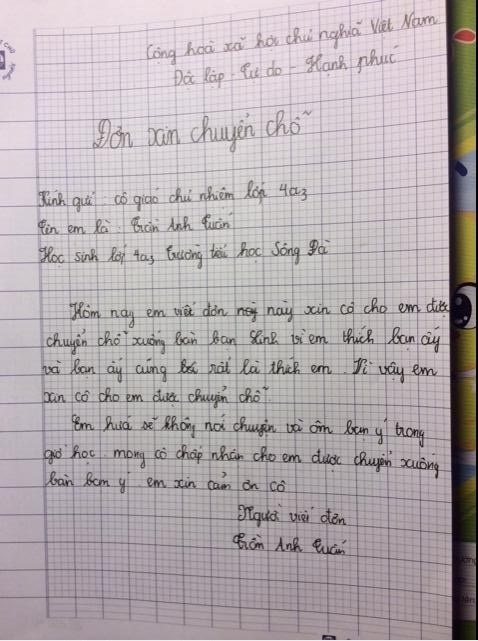 Cộng hoà xã hội chủ nghĩa Việt Nam
Độc lập - Tự do - Hạnh phúc
Đơn xin chuyển chỗ
Kính gửi: cô giáo chủ nhiệm lớp 4a3
Tên em là: Trần Anh Tuấn
Học sinh lớp 4a3 Trường tiểu học Sông Đà
Hôm nay em viết đơn này xin cô cho em được
chuyển chỗ xuống bàn bạn Linh vì em thích bạn ấy
và bạn ấy cũng rất là thích em. Vì vậy em
xin cô cho em được chuyển chỗ.
Em hứa sẽ không nói chuyện và ôm bạn ý trong
giờ học. mong cô chấp nhận cho em được chuyển xuống
bàn bạn ý. em xin cảm ơn cô
Người viết đơn
Trần Anh Tuấn